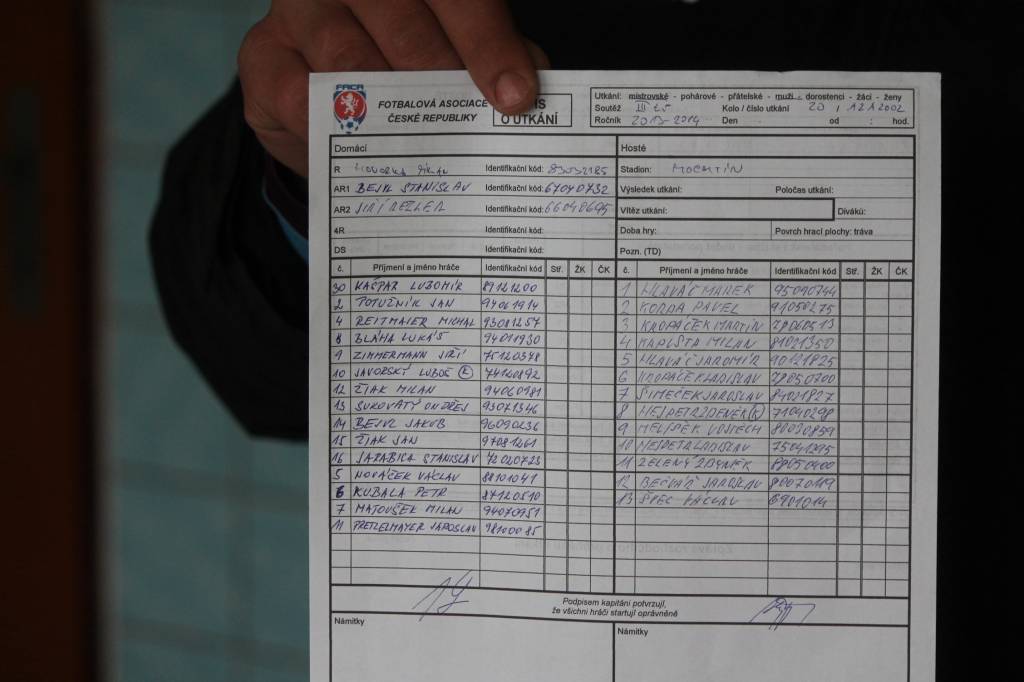 FAČR
FOTBALOVÁ ASOCIACE
ČESKÉ REPUBLIKY
IS
O UTKÁNÍ
Utkání: mistrovské - pohárové - přátelské - muži - dorostenci - žáci - ženy
Soutěž III Kolo / číslo utkání 20 / 12A2002
Ročník 2013-2014 Den od : hod.
Domácí
Hosté
R Identifikační kód:
AR1 BEJVL STANISLAV Identifikační kód: 67040732
AR2 JIŘÍ REZLER Identifikační kód: 66048695
4R Identifikační kód:
DS Identifikační kód:
Stadion: MOCHTÍN
Výsledek utkání: Poločas utkání:
Vítěz utkání: Diváků:
Doba hry: Povrch hrací plochy: tráva
Pozn. (TD)
č. Příjmení a jméno hráče Identifikační kód Stř. ŽK ČK
30 KAŠPAR LUBOMÍR 89121200
2 POTUŽNÍK JAN 94061914
4 REITMAIER MICHAL 93081257
8 BLÁHA LUKÁŠ 94011930
9 ZIMMERMANN JIŘÍ 75120348
10 JAVORSKÝ LUBOŠ (K) 74120892
12 ŽIAK MILAN 94060981
13 SUKOVATÝ ONDŘEJ 93071346
14 BEJVL JAKUB 96090236
15 ŽIAK JAN 97081261
16 JARABICA STANISLAV 72020723
5 NOVÁČEK VÁCLAV 88101041
6 KUBALA PETR 87120510
7 MATOUŠEK MILAN 94070951
11 PRETZLMAYER JAROSLAV 98100085
č. Příjmení a jméno hráče Identifikační kód Stř. ŽK ČK
1 HLAVÁČ MAREK 95090744
2 KORDA PAVEL 91050275
3 KNOPÁČEK MARTIN 78060513
4 KAPLŠTA MILAN 81021350
5 HLAVÁČ JAROMÍR 90121825
6 KNOPÁČEK LADISLAV 78050700
7 ŠIMEČEK JAROSLAV 84021827
8 NEJPETR ZDENĚK (K) 71040298
9 MELÍŠEK VOJTĚCH 88020859
10 LADISLAV 75041295
11 ZELENÝ ZBYNĚK 88050400
12 BEČVÁŘ JAROSLAV 80070189
13 ŠPEC VÁCLAV 6901014
Podpisem kapitáni potvrzují,
že všichni hráči startují oprávněně
Námitky
Námitky